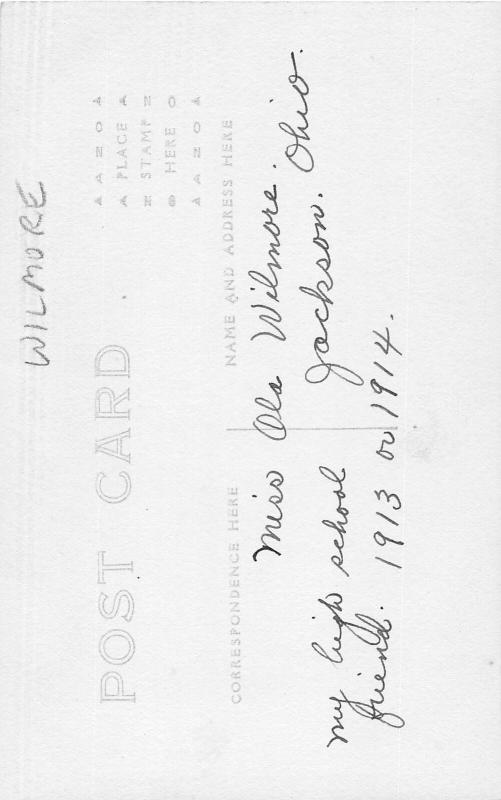 WILMORE
POST CARD
AZOA
PLACE
STAMP
HERE
AZOA
CORRESPONDENCE HERE
NAME AND ADDRESS HERE
Miss Ola Wilmore.
Jackson. Ohio.
my high school
friend. 1913 or 1914.